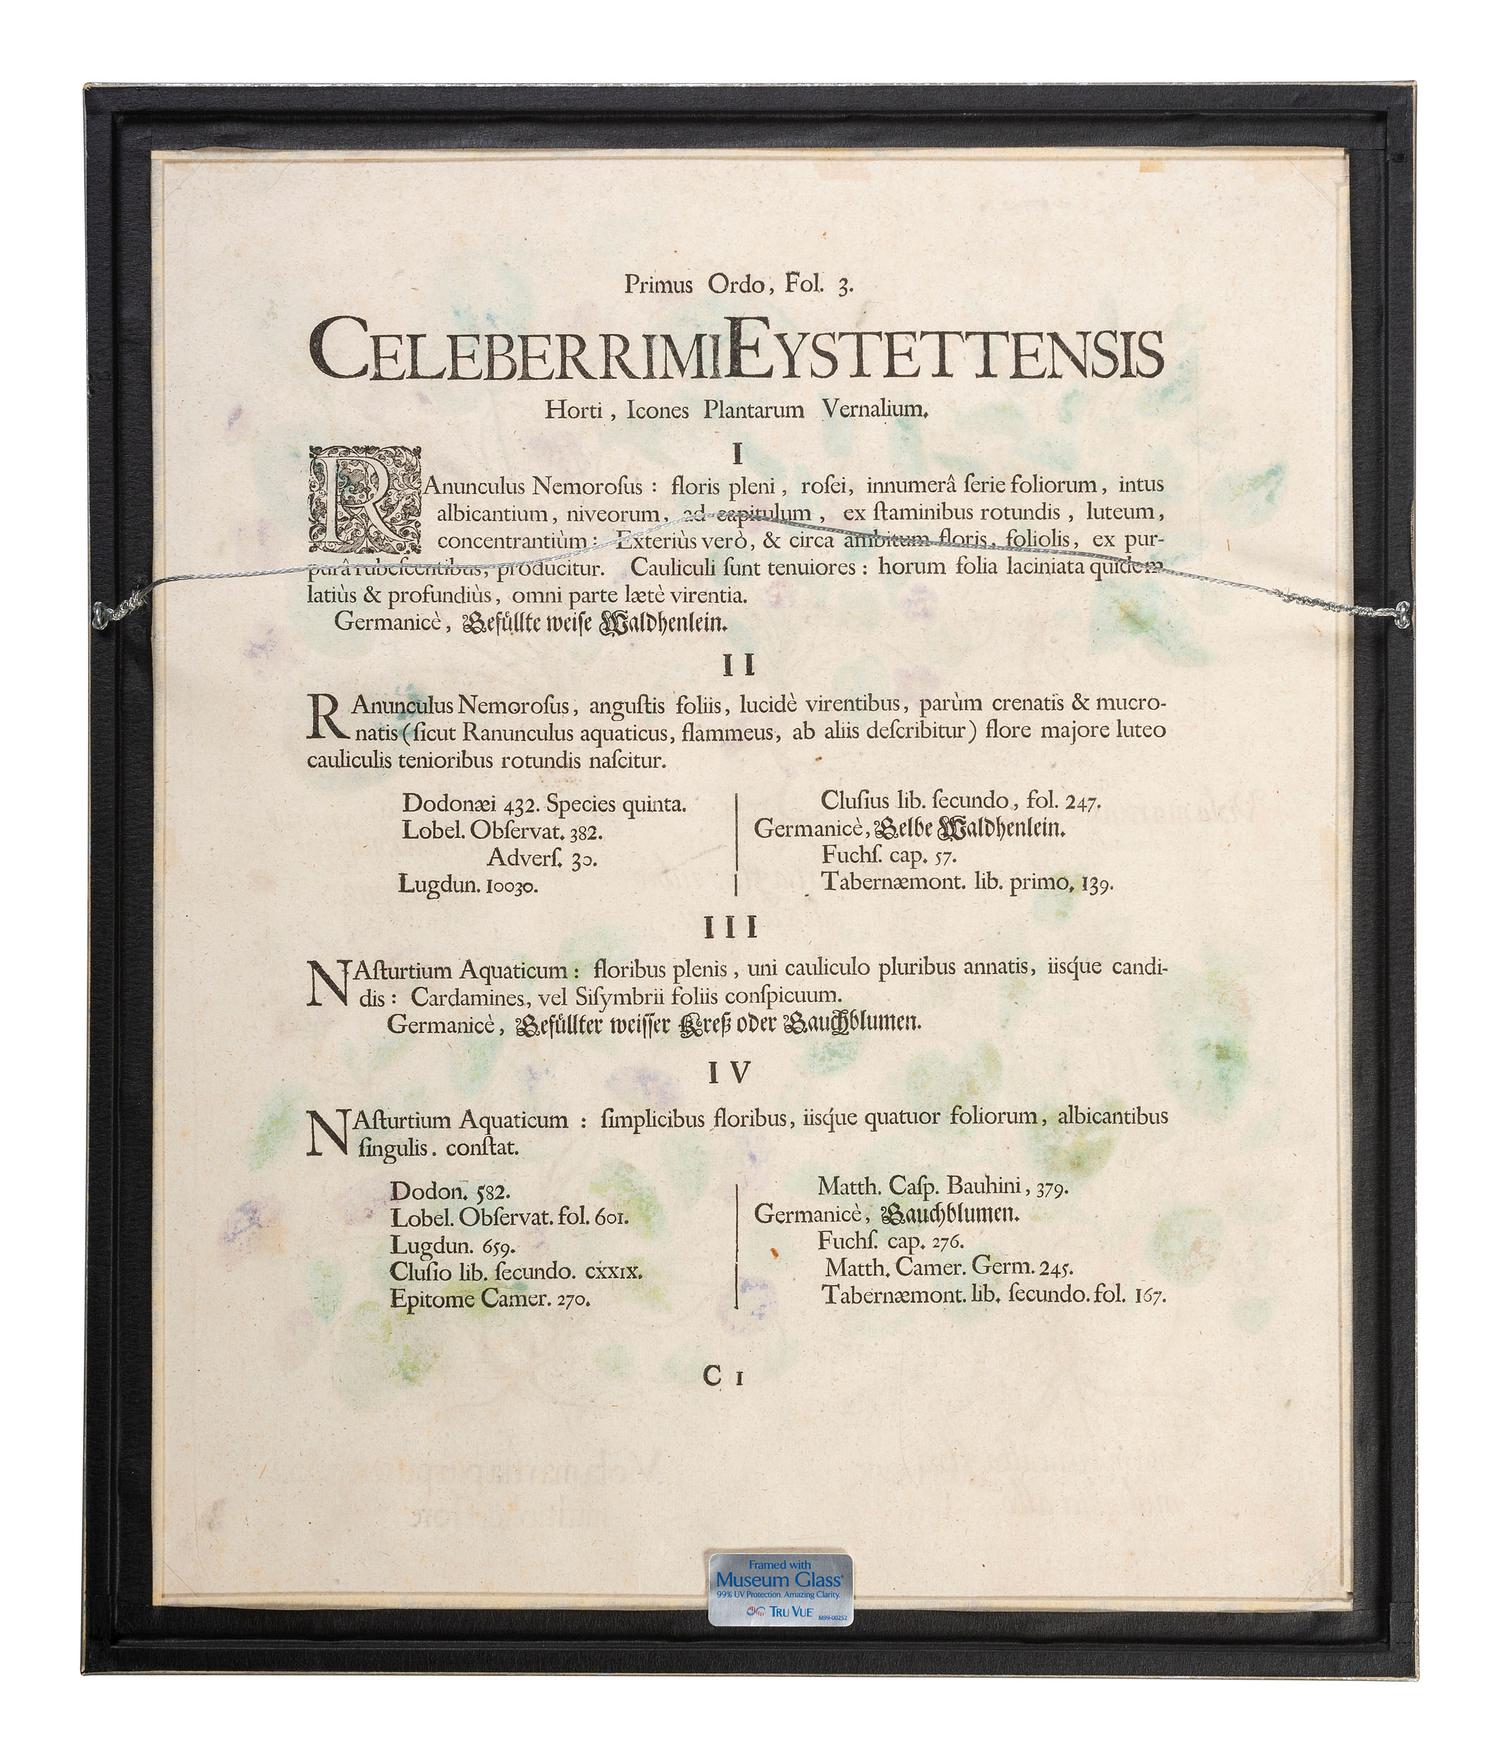 Primus Ordo, Fol. 3.
CELEBERRIMI EYSTETTENSIS
Horti, Icones Plantarum Vernalium.
I
RAnunculus Nemoroſus : floris pleni, roſei, innumerâ ſerie foliorum, intus
albicantium, niveorum, ad capitulum, ex ſtaminibus rotundis, luteum,
concentrantiùm : Exteriùs verò, & circa ambitum floris, foliolis, ex pur-
purâ rubeſcentibus, producitur. Cauliculi ſunt tenuiores : horum folia laciniata quidem
latiùs & profundiùs, omni parte lætè virentia.
Germanicè, Gefüllte weiſe Waldhenlein.
II
RAnunculus Nemoroſus, anguſtis foliis, lucidè virentibus, parùm crenatis & mucro-
natis (ſicut Ranunculus aquaticus, flammeus, ab aliis deſcribitur) flore majore luteo
cauliculis tenioribus rotundis naſcitur.
Dodonæi 432. Species quinta.
Lobel. Obſervat. 382.
Adverſ. 30.
Lugdun. 10030.
Cluſius lib. ſecundo, fol. 247.
Germanicè, Gelbe Waldhenlein.
Fuchſ. cap. 57.
Tabernæmont. lib. primo, 139.
III
NAſturtium Aquaticum : floribus plenis, uni cauliculo pluribus annatis, iisq́ue candi-
dis : Cardamines, vel Siſymbrii foliis conſpicuum.
Germanicè, Gefüllter weiſſer Kreß oder Gauchblumen.
IV
NAſturtium Aquaticum : ſimplicibus floribus, iisq́ue quatuor foliorum, albicantibus
ſingulis. conſtat.
Dodon. 582.
Lobel. Obſervat. fol. 601.
Lugdun. 659.
Cluſio lib. ſecundo. CXXIX.
Epitome Camer. 270.
Matth. Caſp. Bauhini, 379.
Germanicè, Gauchblumen.
Fuchſ. cap. 276.
Matth. Camer. Germ. 245.
Tabernæmont. lib. ſecundo. fol. 167.
C 1
Framed with
Museum Glass®
99% UV Protection. Amazing Clarity.
TRU VUE
M99-00252